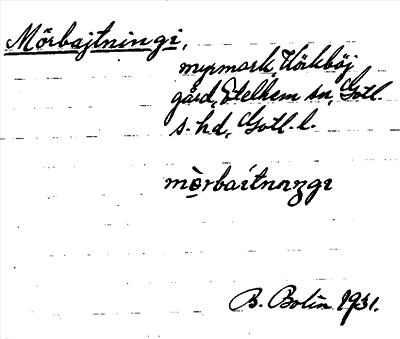 Mörbajtningi,
myrmark,
gård, Etelhem sn, Gotl.
s. hd, Gotl. l.
mörbaitnıŋgi
B. Bolin 1931.